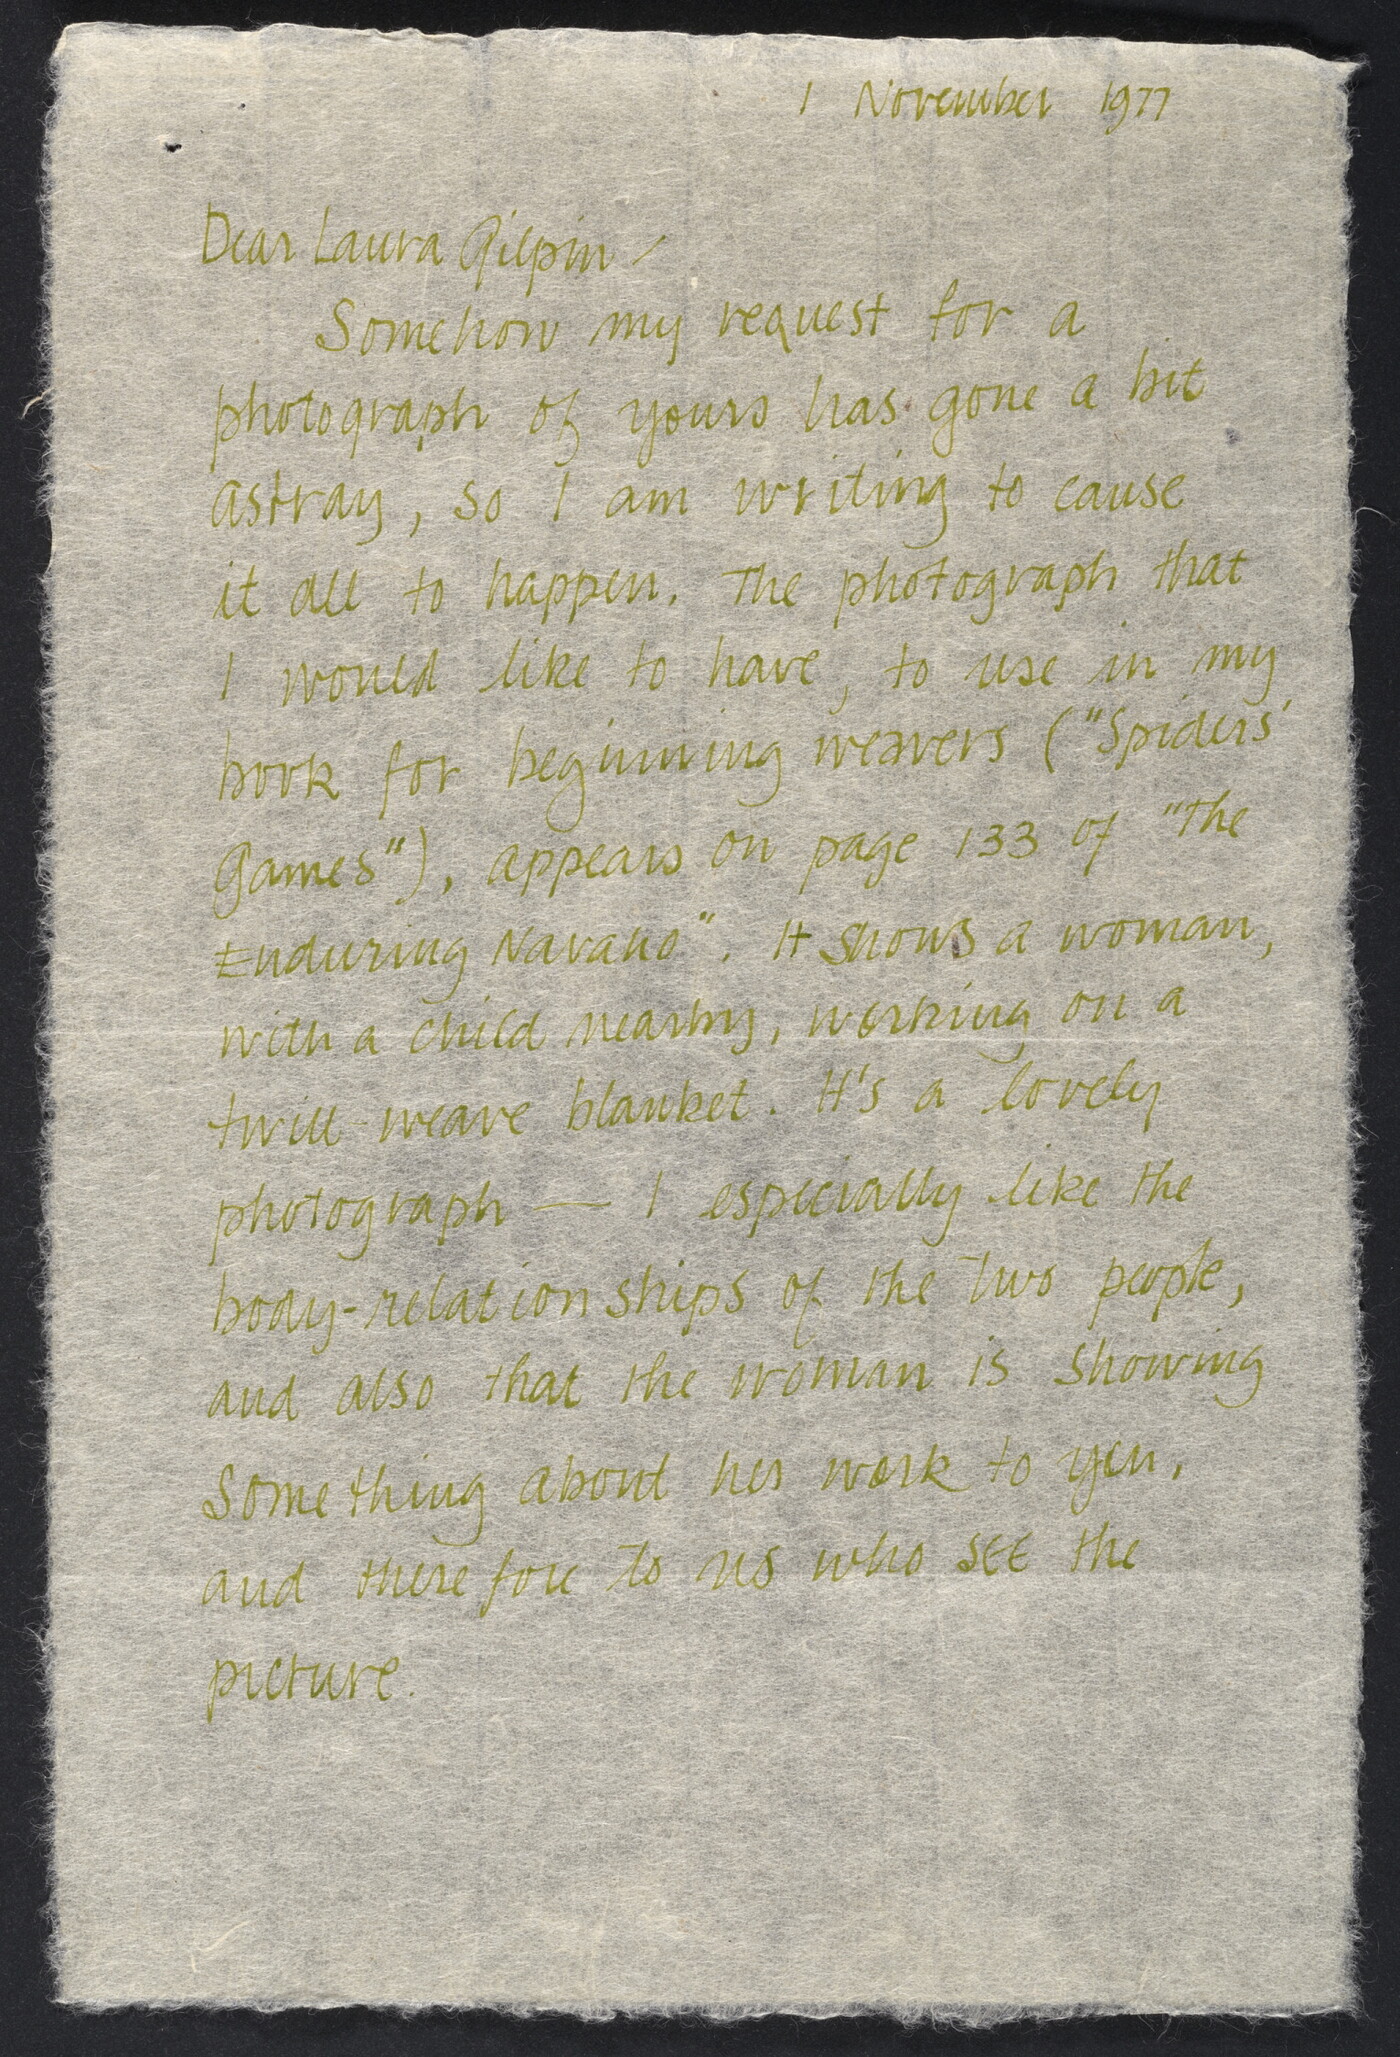 1 November 1977
Dear Laura Gilpin —
Somehow my request for a
photograph of yours has gone a bit
astray, so I am writing to cause
it all to happen. The photograph that
I would like to have, to use in my
book for beginning weavers ("Spiders'
Games"), appears on page 133 of "The
Enduring Navaho". It shows a woman,
with a child nearby, working on a
twill-weave blanket. It's a lovely
photograph — I especially like the
body-relationships of the two people,
and also that the woman is showing
something about her work to you,
and therefore to us who see the
picture.